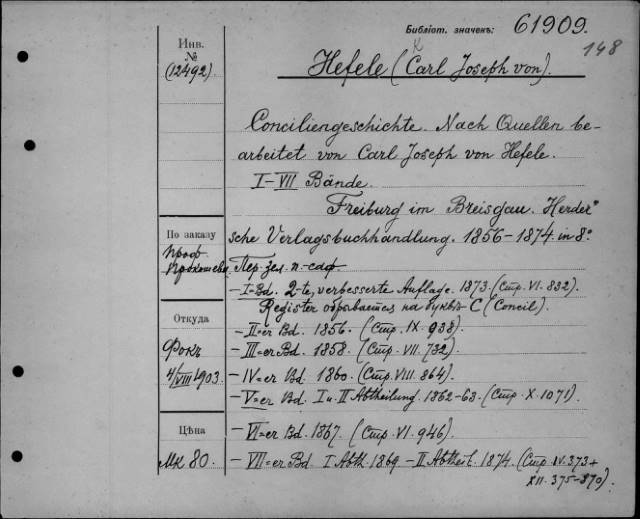 Библіот. значекъ: 61909.
148
Инв.
№
(12492).
K
Hefele (Carl Joseph von).
Conciliengeschichte. Nach Quellen be-
arbeitet von Carl Joseph von Hefele.
I–VII Bände.
Freiburg im Breisgau. Herder"
По заказу
sche Verlagsbuchhandlung. 1856–1874. in 8º.
проф.
Пер. зел. п.-саф.
– I=Bd. 2-te, verbesserte Auflage. 1873. (Стр. VI. 832).
Register обрывается на буквѣ C (Concil).
Откуда
– II=er Bd. 1856. (Стр. IX. 938).
Фокъ
– III=er Bd. 1858. (Стр. VII. 732).
4/VIII 1903.
– IV=er Bd. 1860. (Стр. VIII. 864).
– V=er Bd. I u. II Abtheilung. 1862-63. (Стр. X. 1071).
Цѣна
– VI=er Bd. 1867. (Стр. VI. 946).
Мк 80.
– VII=er Bd. I Abth. 1869 – II Abtheil. 1874. (Стр. IV. 373 +
XII. 375–870).